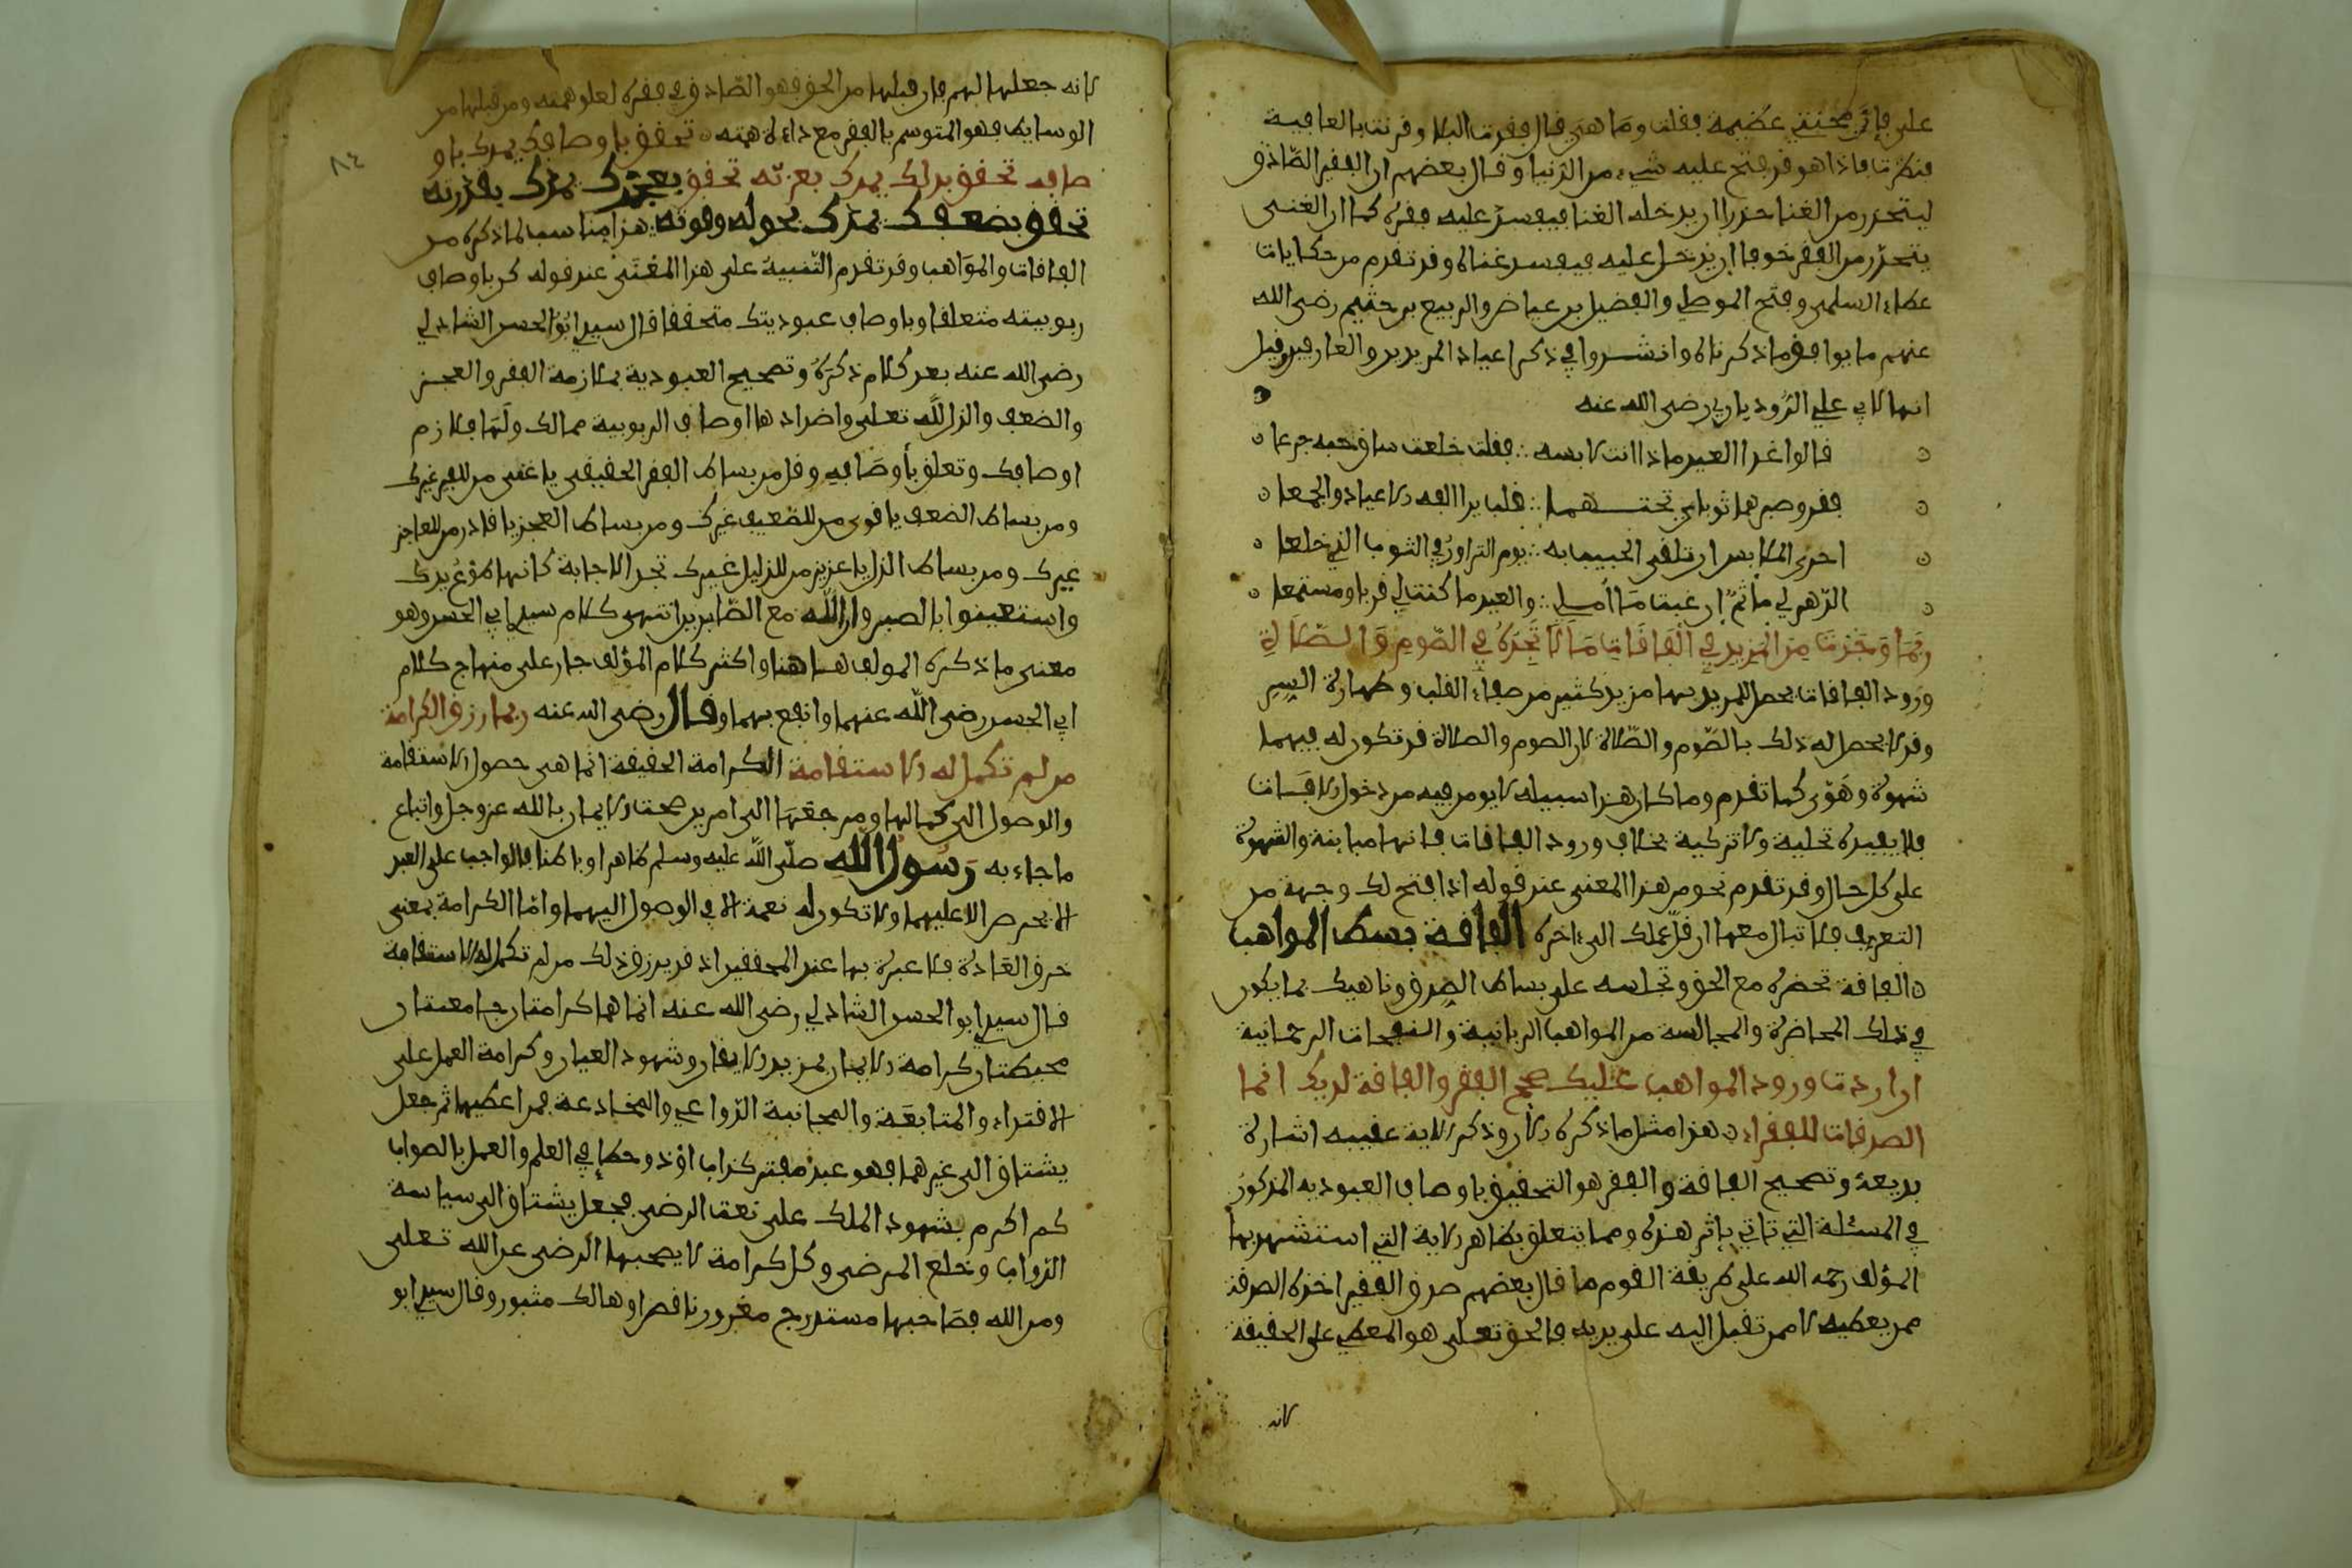 علي فإن محنتي عظيمة فقلت وما هي قال فقدت البلا وقرنت بالعافية
فنظرت فاذا هو قد فتح عليه شيء من الدنيا وقال بعضهم ان الفقير الصادق
ليتحرز من الغنا حذرا ان يدخله الغنا فيفسد عليه فقره كما ان الغني
يتحرز من الفقر خوفا ان يدخل عليه فيفسد غناه وقد تقدم من حكايات
عطاء السلمي وفتح الموصلي والفضيل بن عياض والربيع بن خثيم رضي الله
عنهم ما يوافق ما ذكرناه وانشدوا في ذكر اعياد المريدين والعارفين وقيل
انها لابي علي الروذباري رضي الله عنه
قالوا غدا العيد ماذا انت لابسه ∴ فقلت خلعة ساق حبه جرعا
فقر وصبر هما ثوباي تحتهما ∴ قلب يرا الفه الاعياد والجمعا
احرى الملابس ان تلقى الحبيب به ∴ يوم التزاور في الثوب الذي خلعا
الدهر لي مأتم ان غبت يا أملي ∴ والعيد ما كنت لي قربا ومستمعا
ربما وجدت من المزيد في الفاقات ما لا تجده في الصوم والصلاة
ورود الفاقات يحصل للمريد بها مزيد كثير من صفاء القلب وطهارة السر
وقد لا يحصل له ذلك بالصوم والصلاة لان الصوم والصلاة قد تكون له فيهما
شهوة وهوى كما تقدم وما كان هذا سبيله لا يومن فيه من دخول الافات
فلا يفيده تحلية ولا تزكية بخلاف ورود الفاقات فانها مباينة والشهوة
على كل حال وقد تقدم نحو من هذا المعنى عند قوله اذا فتح لك وجهة من
التعرف فلا تبال معها ان قل عملك الى ءاخره الفاقة بسط المواهب
الفاقة تحضره مع الحق وتجالسه على بساط الصدق وناهيك بما يكون
في ذلك المحاضرة والمجالسة من المواهب الربانية والنفحات الرحمانية
ان اردت ورود المواهب عليك صحح الفقر والفاقة لديك انما
الصدقات للفقراء هذا مثل ما ذكره الان وذكر الاية عقيبه اشارة
بديعة وتصحيح الفاقة والفقر هو التحقيق باوصاف العبوديه المذكور
في المسئلة التي تاتي باثر هذه ومما يتعلق بظاهر الاية التي استشهد بها
المؤلف رحمه الله على طريقة القوم ما قال بعضهم صدق الفقير اخذه الصدقة
ممن يعطيه لا ممن تقبل اليه على يديه فالحق تعلى هو المعطي على الحقيقة
لانه
٨٤
لانه جعلها لهم فان قبلها من الحق فهو الصادق في فقره لعلو همته ومن قبلها من
الوسايط فهو المتوسم بالفقر مع دناءة همته تحقق باوصافك يمدك باو
صافه تحقق بذلك يمدك بعزته تحقق بعجزك يمدك بقدرته
تحقق بضعفك يمدك بحوله وقوته هذا مناسب لما ذكره من
الفاقات والمواهب وقد تقدم التنبيه على هذا المعنى عند قوله كن باوصاف
ربوبيته متعلقا وباوصاف عبوديتك متحققا قال سيدي ابو الحسن الشاذلي
رضي الله عنه بعد كلام ذكره وتصحيح العبودية بملازمة الفقر والعجز
والضعف والذل لله تعلى واضدادها اوصاف الربوبية ممالك ولها فلازم
اوصافك وتعلق بأوصافه وقل من بساط الفقر الحقيقي يا غني من للفقير غيرك
ومن بساط الضعف يا قوي من للضعيف غيرك ومن بساط العجز يا قادر من للعاجز
غيرك ومن بساط الذل يا عزيز من للذليل غيرك تجد الاجابة كانها طوع يدك
واستعينوا بالصبر وان الله مع الصابرين انتهى كلام سيدي ابي الحسن وهو
معنى ما ذكره المولف هاهنا واكثر كلام المؤلف جار على منهاج كلام
ابي الحسن رضي الله عنهما وانفع بهما وقال رضي الله عنه ربما رزق الكرامة
من لم تكمل له الاستقامة الكرامة الحقيقة انما هي حصول الاستقامة
والوصول الى كمالها ومرجعها الى امرين صحة الايمان بالله عز وجل واتباع
ما جاء به رسول الله صلى الله عليه وسلم ظاهرا وباطنا فالواجب على العبد
الا يحرص الا عليهما ولا تكون له نعمة الا في الوصول اليهما واما الكرامة بمعنى
خرق العادة فلا عبرة بها عند المحققين اذ قد يرزق ذلك من لم تكمل له الاستقامة
قال سيدي ابو الحسن الشاذلي رضي الله عنه انما هما كرامتان جامعتان
محيطتان كرامة الايمان بمزيد الايقان وشهود العيان وكرامة العمل على
الاقتداء والمتابعة والمجانبة الدواعي والمخادعة فمن اعطيهما ثم جعل
يشتاق الى غيرهما فهو عبد مفتر كذاب اوذو خطإ في العلم والعمل بالصواب
كم اكرم بشهود الملك على نعت الرضى فجعل يشتاق الى سياسة
الدواب وخلع المرضى وكل كرامة لا يصحبها الرضى عن الله تعلى
ومن الله فصاحبها مستدرج مغرور ناقص او هالك مثبور وقال سيدي ابو